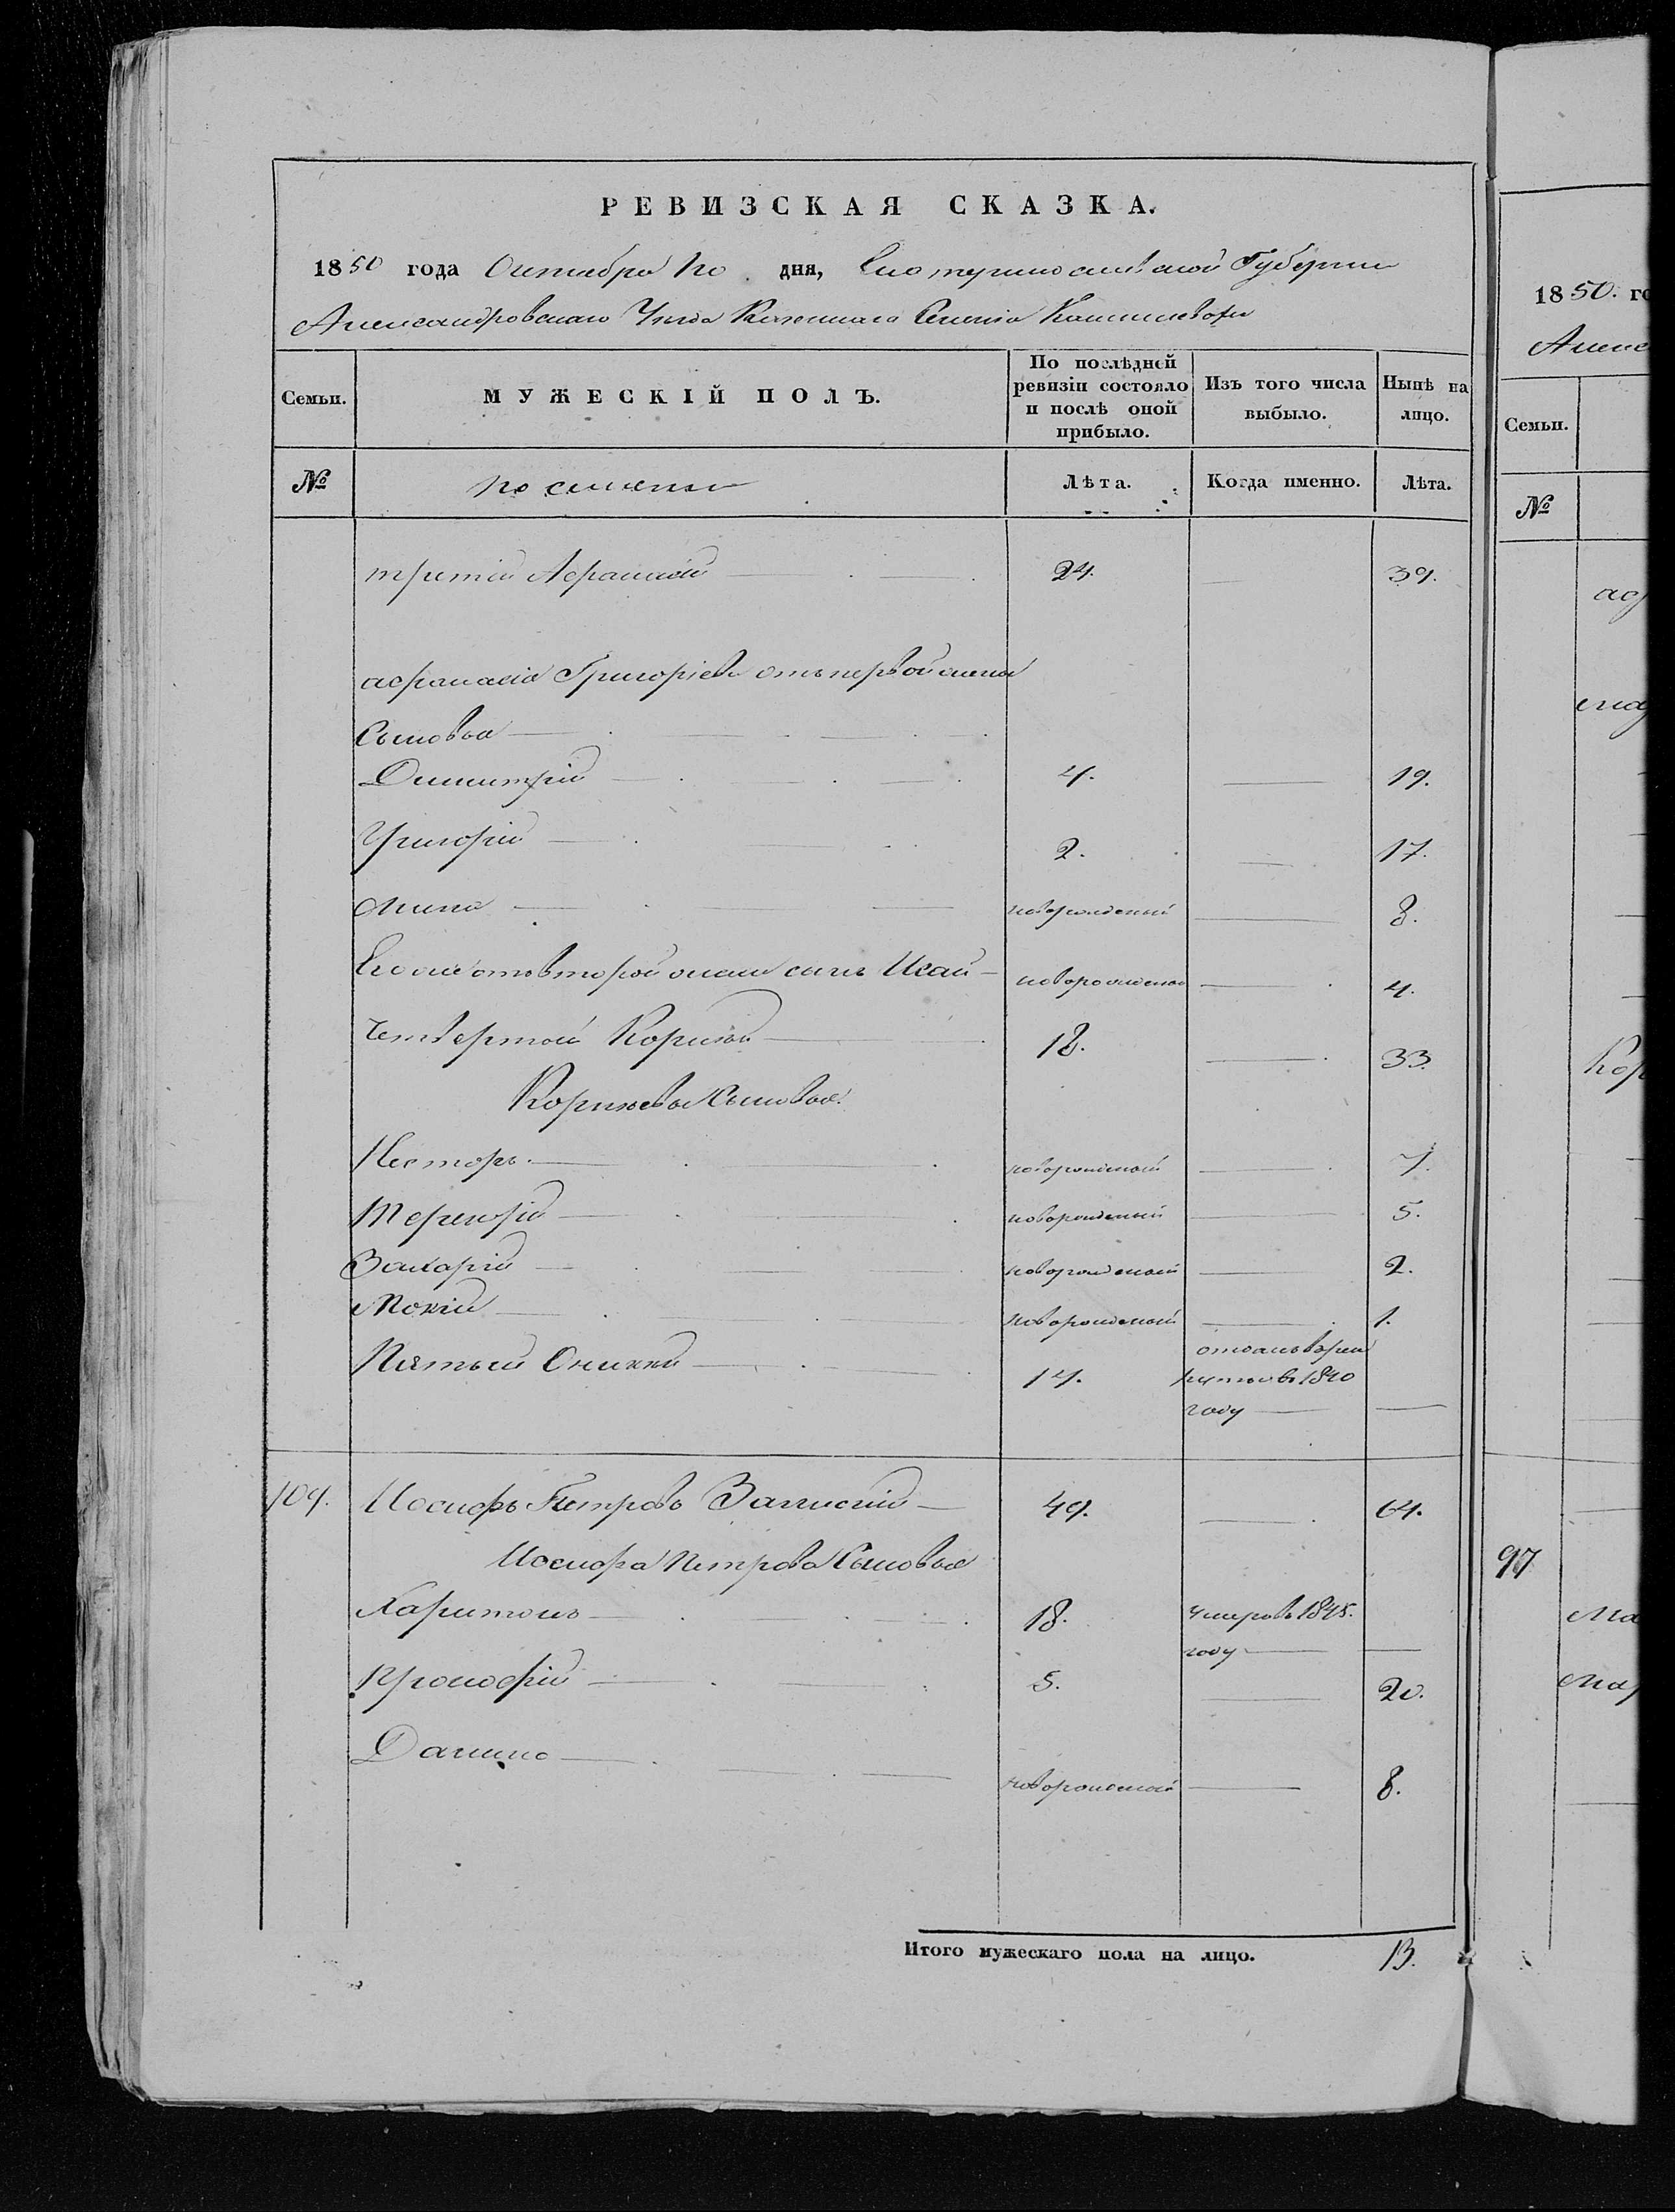 РЕВИЗСКАЯ СКАЗКА.
1850 года Октября 10 дня, Екатеринославской Губернии
Александровскаго Уѣзда Казеннаго Селенія
Семьи. МУЖЕСКІЙ ПОЛЪ. По послѣдней ревизіи состояло и послѣ оной прибыло. Изъ того числа выбыло. Нынѣ на лицо.
№ Лѣта. Когда именно. Лѣта.
третій Афанасій 24. 39.
афанасія Григорьева отъ первой жены
Сыновья
Димитрій 4. 19.
Григорій 2. 17.
новорожденный 8.
Его же отъ второй жены сынъ Исай новорожденный 4.
четвертой Корнѣй 18. 33.
Корнѣевы Сыновья.
Несторъ новорожденный 7.
Терентій новорожденный 5.
Захарій новорожденный 2.
Мокій новорожденный 1.
Пятый 14. отданъ въ рекруты въ 1840 году
109. Іосифъ Петровъ 49. 64.
Іосифа Петрова Сыновья
Харитонъ 18. умеръ въ 1845. году
Прокофій 5. 20.
Данило новорожденный 8.
Итого мужескаго пола на лицо. 13.
1850. го
Алекс
Семьи.
№
Кор
97